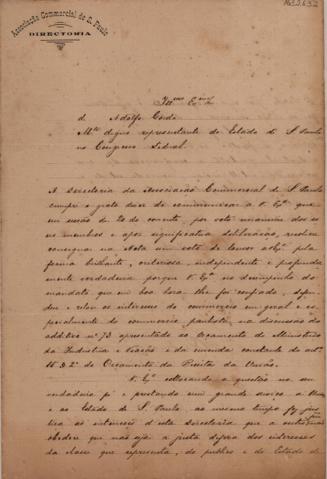 Associação Commercial de S. Paulo
DIRECTORIA
Illmo. Exmo. Sr.
d. Adolfo Gordo
M. digno representante do Estado de S. Paulo
no Congresso Federal
A Directoria da Associação Commercial de S. Paulo
cumpre o grato dever de communicar a V. Exa. que
em sessão de 20 do corrente, por voto unanime dos se
us membros e apos significativa deliberação, resolveu
consignar na Acta um voto de louvor a V. Exa. pela
forma brilhante, criteriosa, independente e profunda
mente verdadeira porque V. Exa. no desempenho do
mandato que em boa hora lhe foi confiado, defen
deu e os interesses do commercio em geral e es
pecialmente do commercio paulista, na discussão do
additivo nº 73 apresentado ao Orçamento do Ministerio
da Industria e Viação e da emenda constante do art.
do Orçamento da Receita da União.
V. Exa. collocando a questão no seu
verdadeiro pé e prestando um grande serviço a União
e ao Estado de S. Paulo, ao mesmo tempo fez jus
tiça as intenções d'esta Directoria que
não seja a justa defesa dos interesses
da classe que representa, do publico e do Estado de